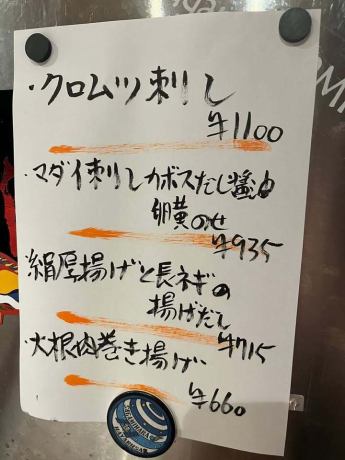 ・クロムツ刺し
¥1100
・マダイ刺しカボスだし醤油
卵黄のせ
¥935
・絹厚揚げと長ネギの
揚げだし
¥715
・大根肉巻き揚げ
¥660